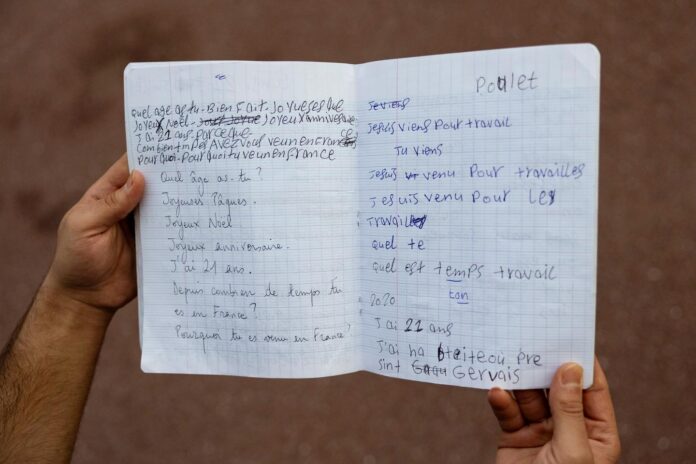 quel age as tu - Bien Fait. Joyeuses que
Joyeux Noël - Joyeux anniversaire
J'ai 21 ans. parceque
Comben tmps AVEZ vous veun en France
Pourquoi - Pourquoi tu veun en France
Quel âge as-tu ?
Joyeuses Pâques.
Joyeux Noël.
Joyeux anniversaire.
J'ai 21 ans.
Depuis combien de temps tu
es en France ?
Pourquoi tu es venu en France ?
Poulet
Jeviens
Jesuis viens Pour travail
Tu viens
Jesuis venu Pour travailles
Jesuis venu Pour les
Travail
quel te
quel est temps travail
ton
2020
J'ai 21 ans
J'ai ha oteiteou Pre
Sint Gervais